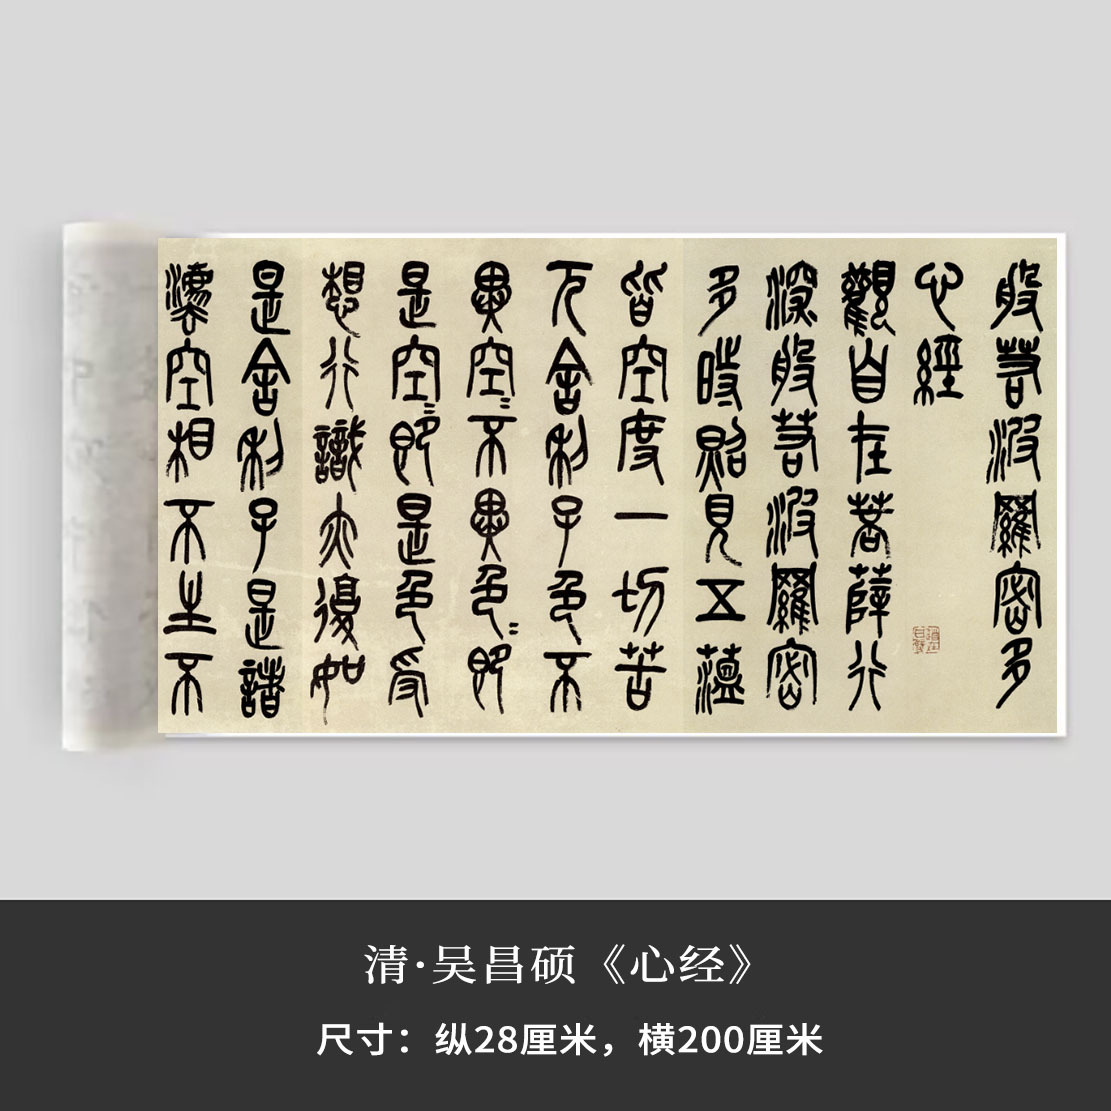 般若波羅密多
心經
觀自在菩薩行
深般若波羅密
多時照見五蘊
皆空度一切苦
厄舍利子色不
異空〻不異色〻即
是空〻即是色受
想行識亦復如
是舍利子是諸
灋空相不生不
清·吴昌硕《心经》
尺寸：纵28厘米，横200厘米